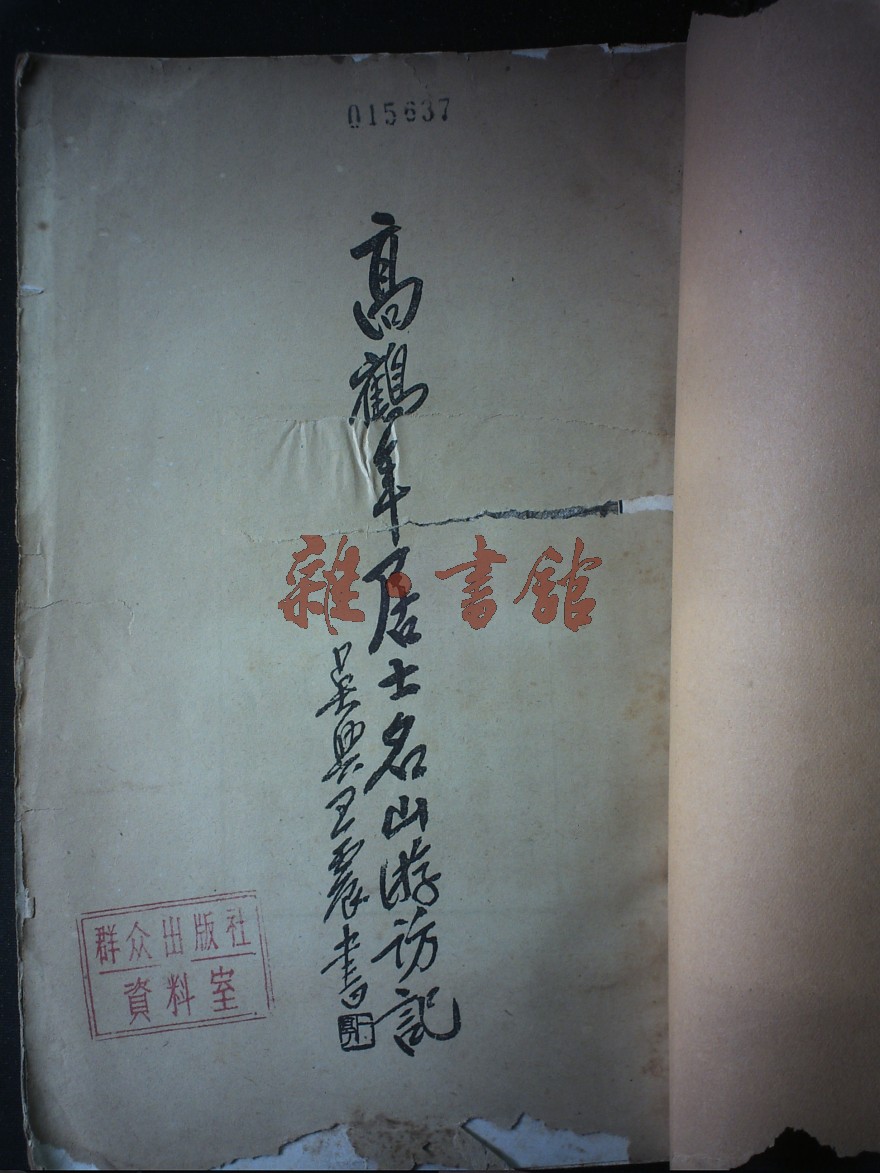 015637
高鶴年居士名山游访記
吴興王震書
雜·書館
群众出版社
資料室